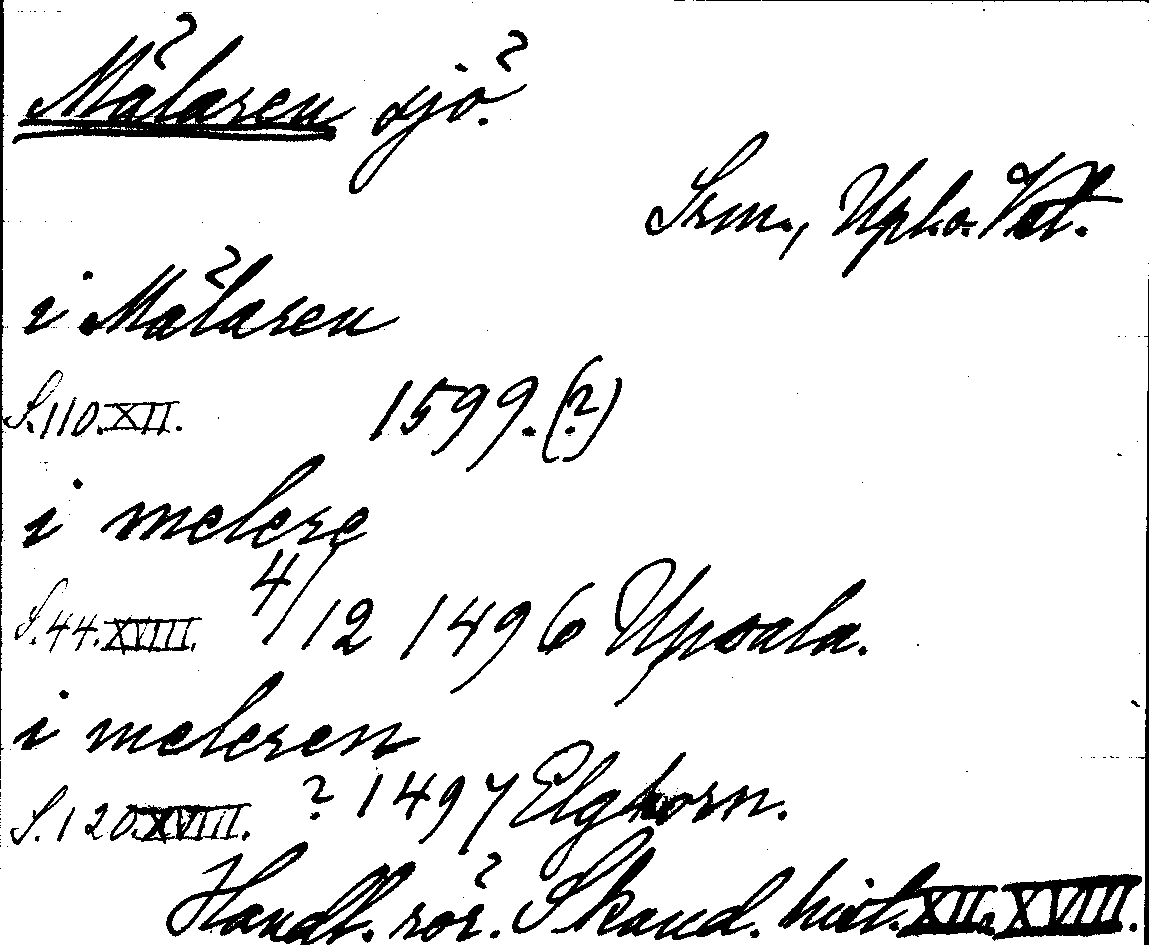 Mälaren sjö.
Srm., Upl. o. Vstl.
i Mälaren
S. 110. XII. 1599. (?)
i melere
S. 44. XVIII. 4/12 1496 Upsala.
i meleren
S. 120. XVIII. ? 1497 Elghorn.
Handl. rör. Skand. hist. XII. XVIII.